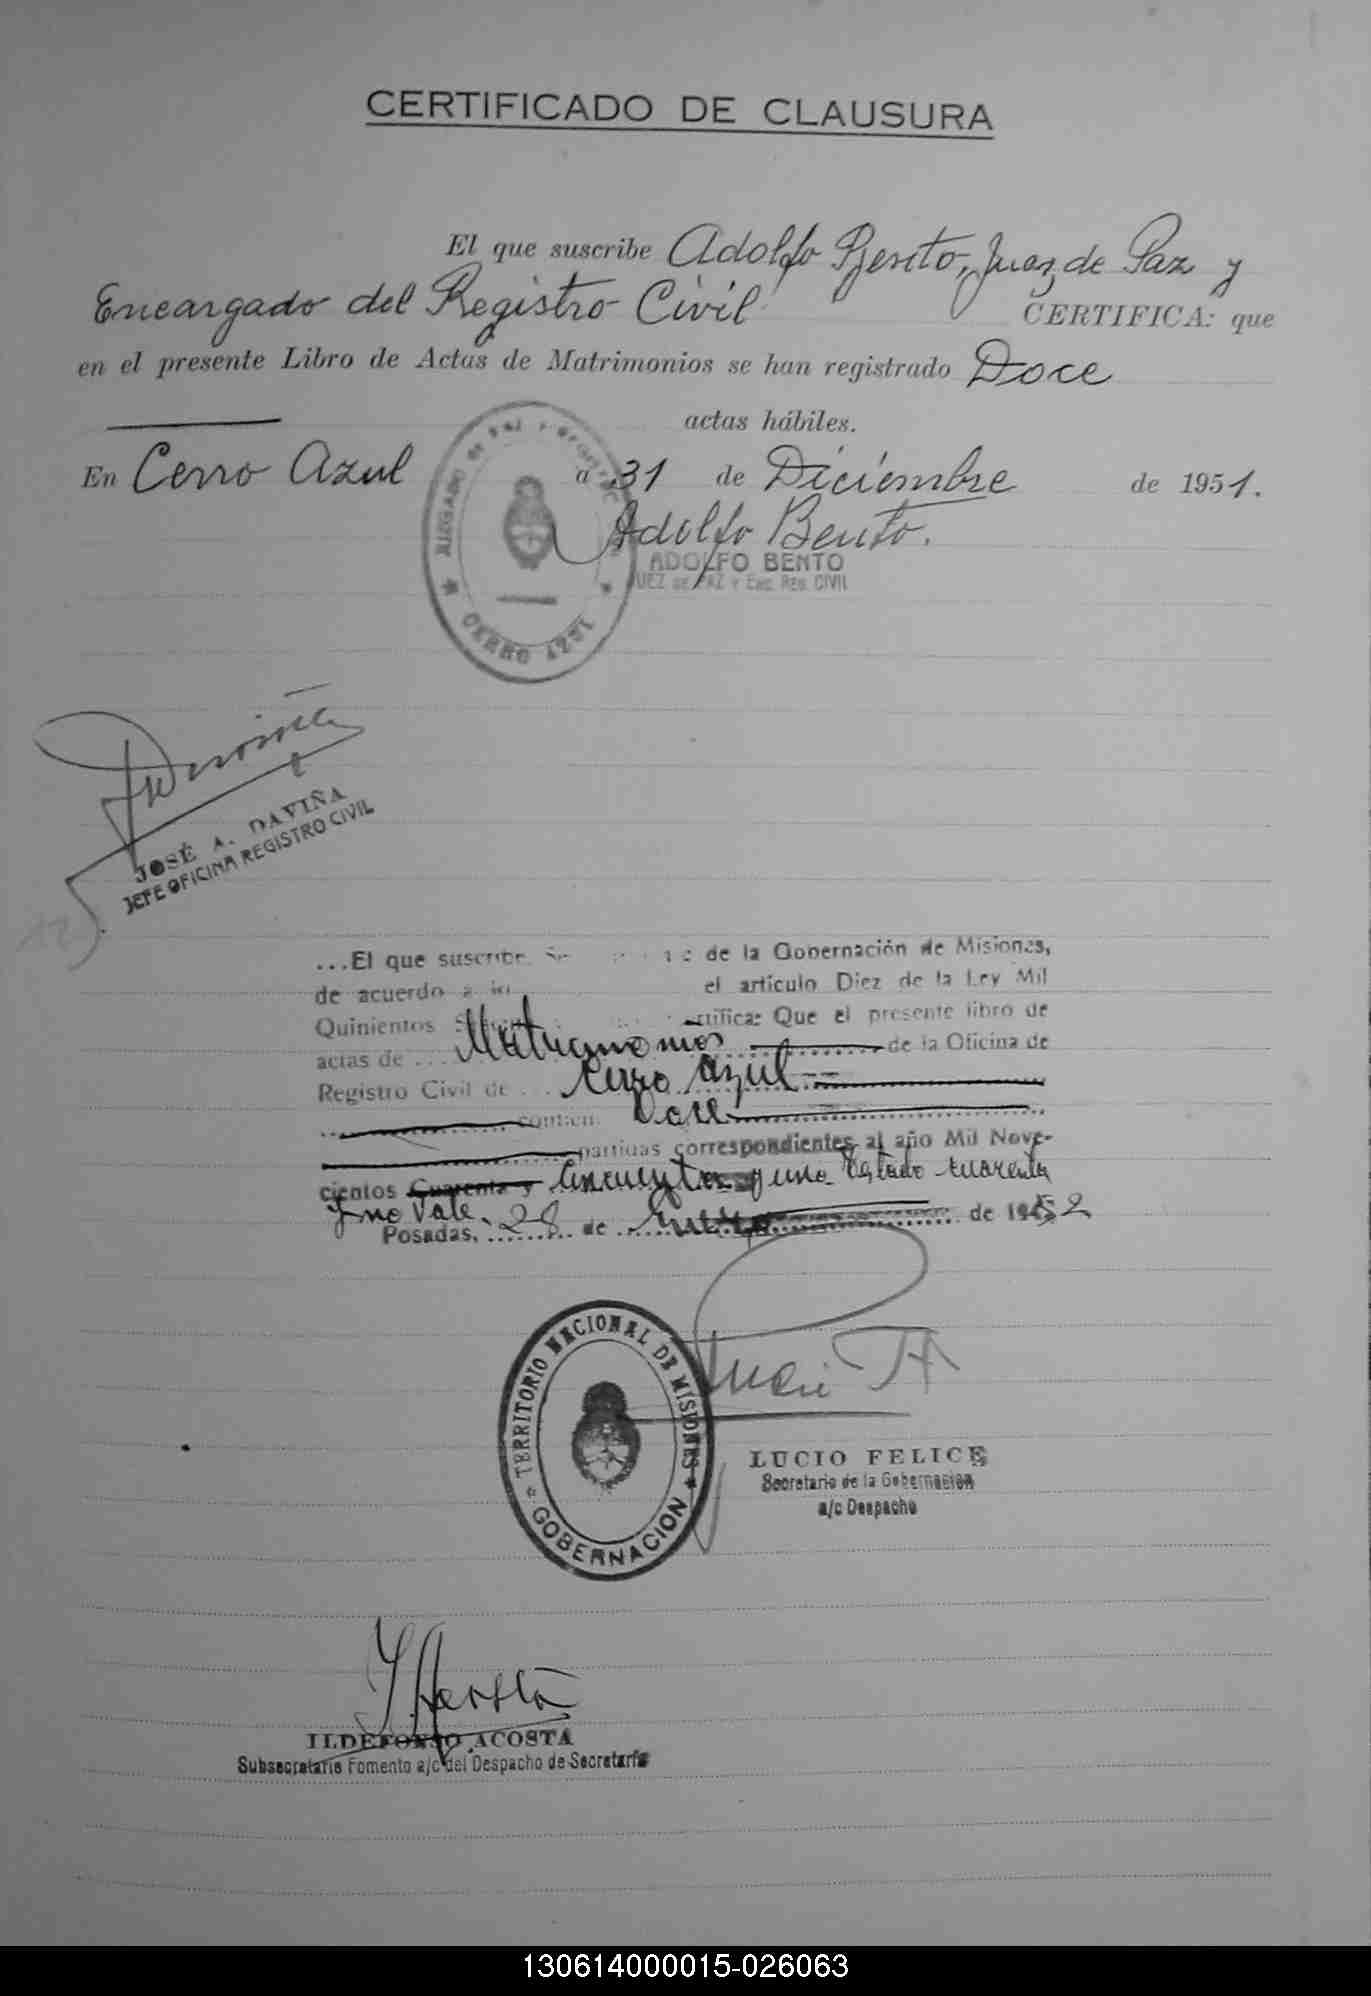 CERTIFICADO DE CLAUSURA
El que suscribe Adolfo Bento, Juez de Paz y
Encargado del Registro Civil CERTIFICA: que
en el presente Libro de Actas de Matrimonios se han registrado Doce
actas hábiles.
En Cerro Azul a 31 de Diciembre de 1951.
Adolfo Bento.
ADOLFO BENTO
JUEZ DE PAZ Y ENC. REG. CIVIL
CERRO AZUL
JOSÉ A. DAVIÑA
JEFE OFICINA REGISTRO CIVIL
...El que suscribe de la Gobernación de Misiones,
de acuerdo a lo el artículo Diez de la Ley Mil
Quinientos Que el presente libro de
actas de ... Matrimonios de la Oficina de
Registro Civil de ... Cerro Azul
contiene Doce
partidas correspondientes al año Mil Nove-
cientos Cuarenta y Cincuenta y uno Testado cuarenta
y no Vale.
Posadas, 28 de Enero de 1952
TERRITORIO NACIONAL DE MISIONES
GOBERNACION
LUCIO FELICE
Secretario de la Gobernacion
a/c Despacho
ILDEFONSO ACOSTA
Subsecretario Fomento a/c del Despacho de Secretaría
130614000015-026063